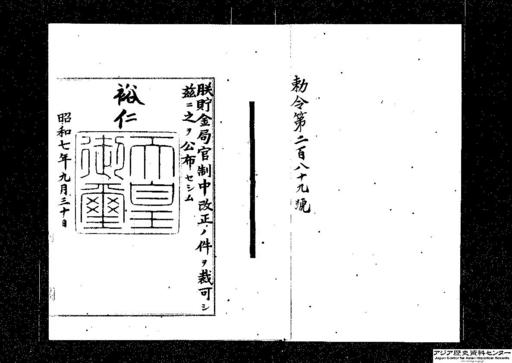 勅令第二百八十九號
朕貯金局官制中改正ノ件ヲ裁可シ
茲ニ之ヲ公布セシム
裕仁
天皇
御璽
昭和七年九月三十日
アジア歴史資料センター
Japan Center for Asian Historical Records